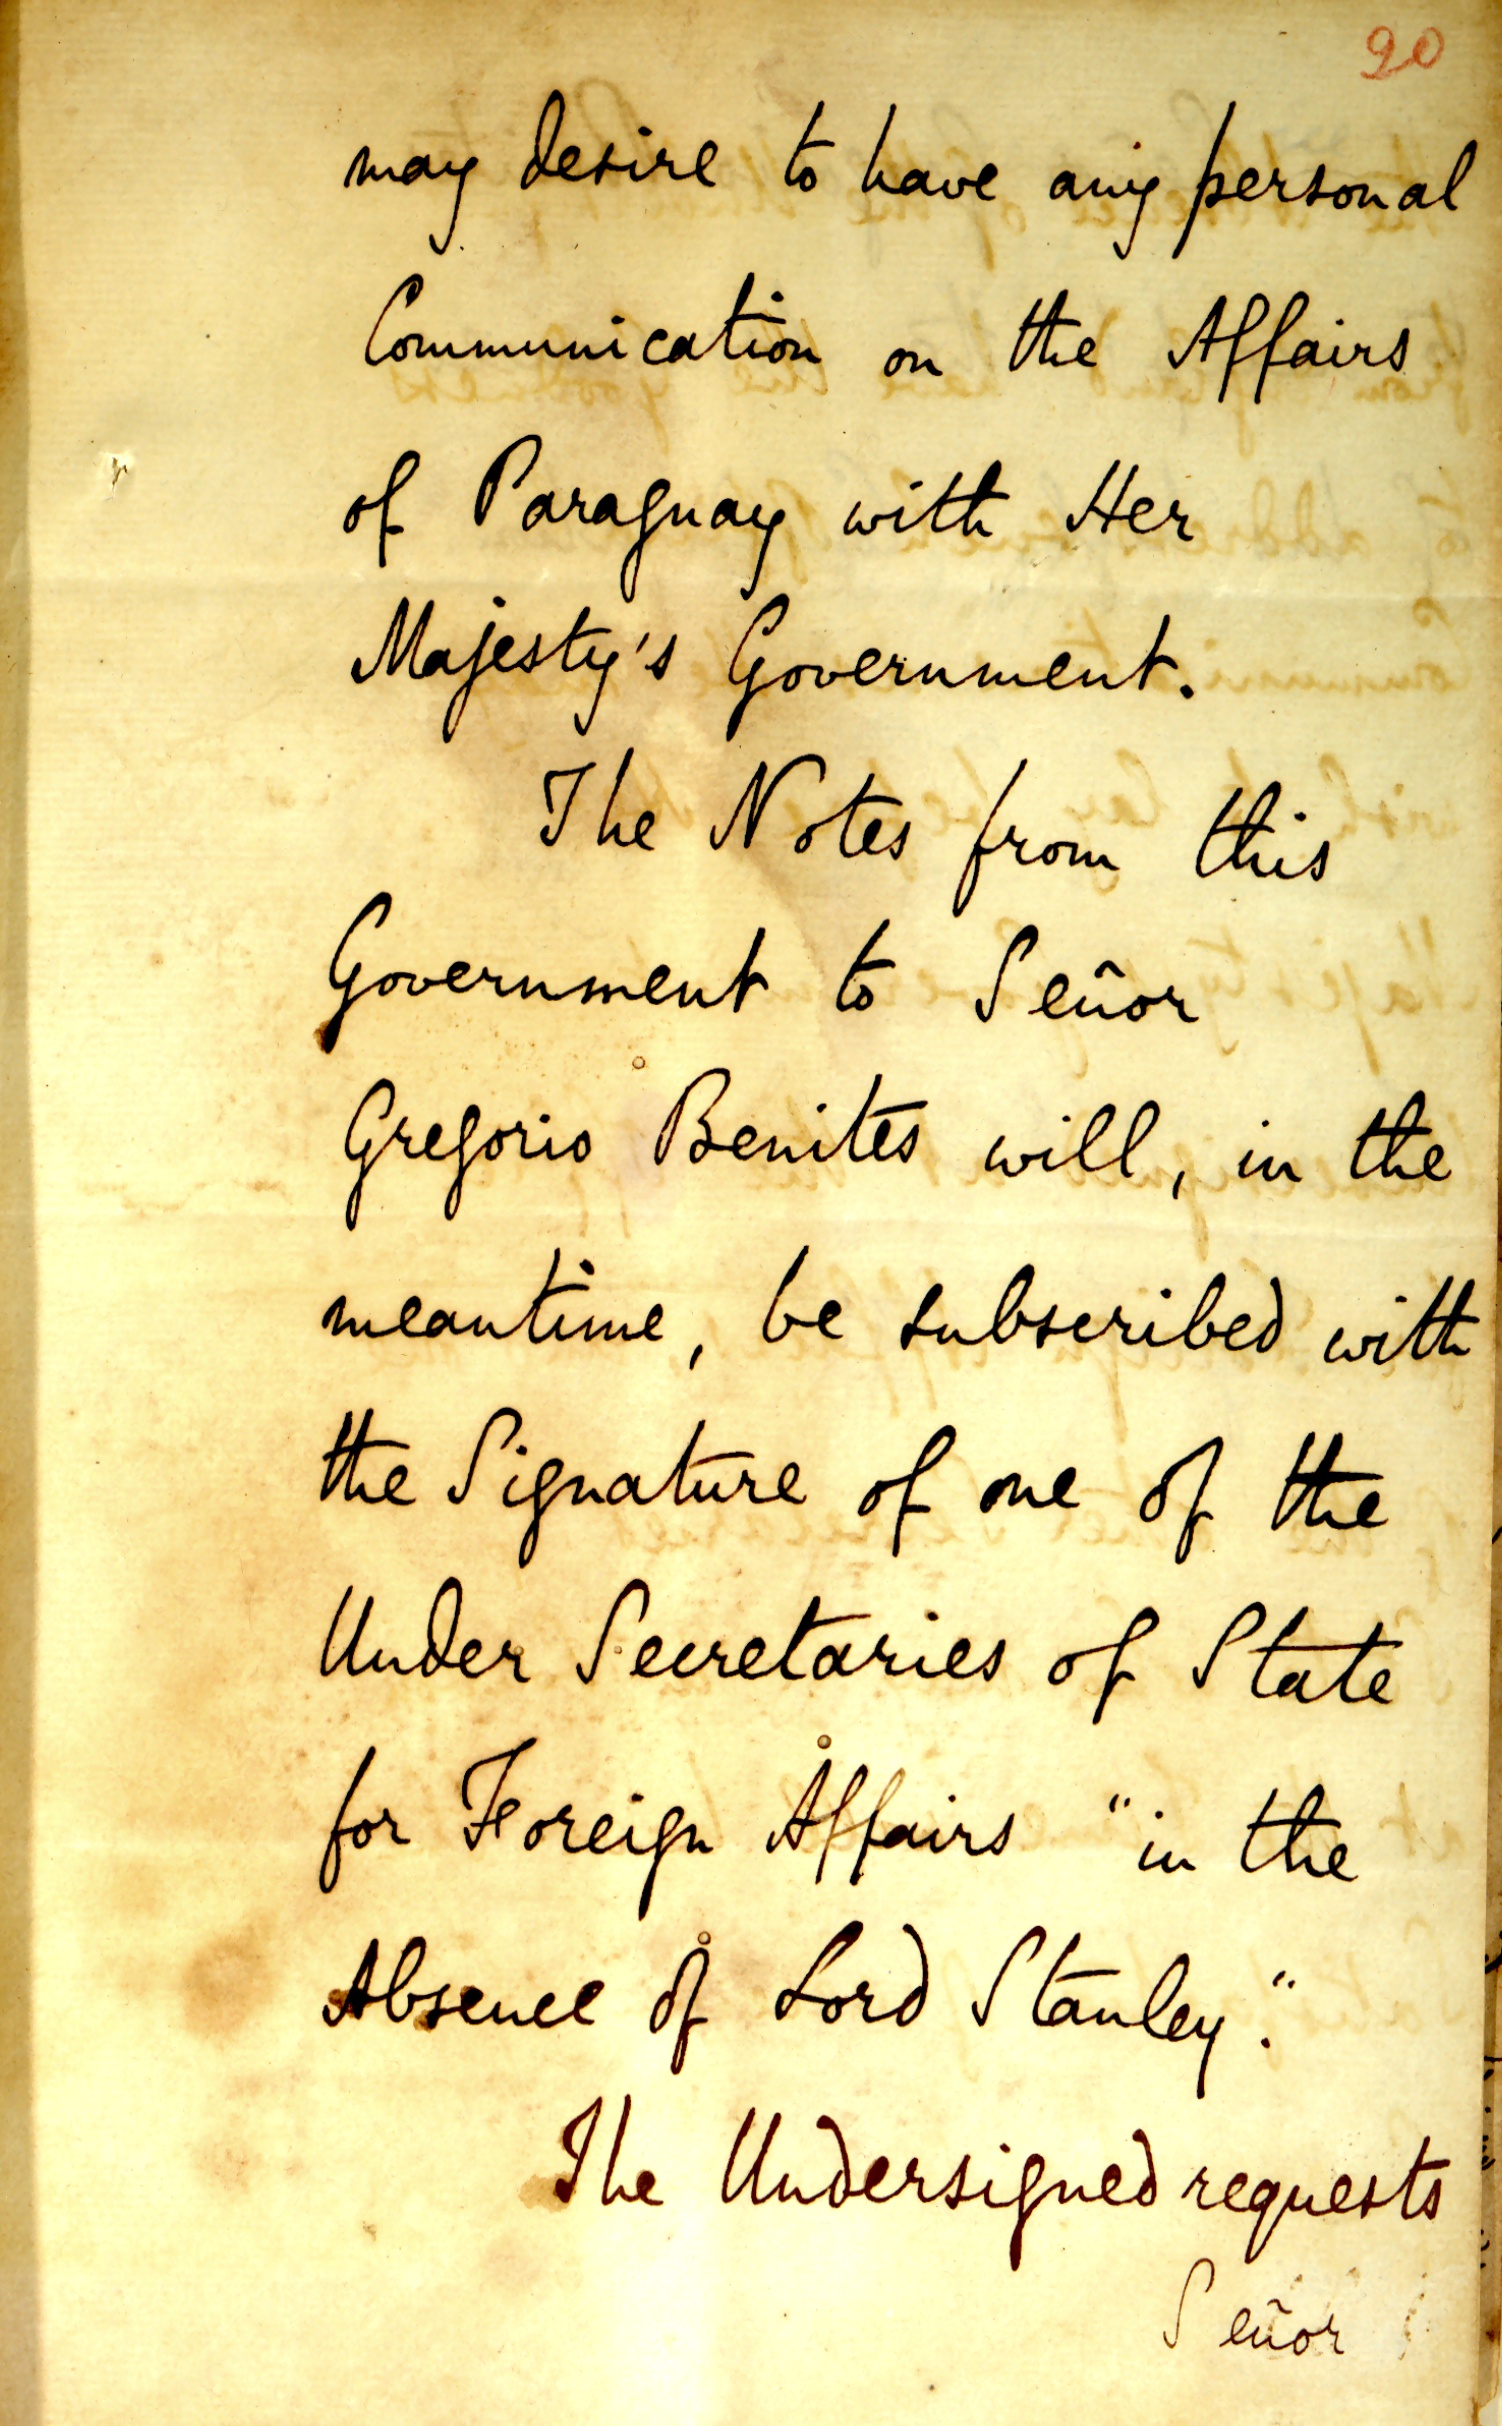 20
may desire to have any personal
Communication on the Affairs
of Paraguay with Her
Majesty's Government.
The Notes from this
Government to Señor
Gregorio Benites will, in the
meantime, be subscribed with
the Signature of one of the
Under Secretaries of State
for Foreign Affairs "in the
Absence of Lord Stanley."
The Undersigned requests
Señor